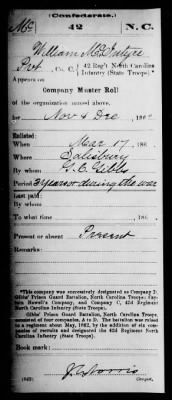 (Confederate.)
Mc 42 N.C.
William McIntyre
Pvt, Co. C, 42 Reg't North Carolina
Infantry (State Troops).*
Appears on
Company Muster Roll
of the organization named above,
for Nov & Dec, 186
Enlisted:
When Mar 17, 186
Where Salisbury
By whom G. C. Gibbs
Period 3 years or during the war
Last paid:
By whom
To what time , 186
Present or absent Present
Remarks:
*This company was successively designated as Company
Gibbs' Prison Guard Battalion, North Carolina Troops;
Howell's Company, and Company C, 42d Regiment
North Carolina Infantry (State Troops).
Gibbs' Prison Guard Battalion, North Carolina Troops,
consisted of four companies, A to D. The battalion was raised
to a regiment about May, 1862, by the addition of six companies
of recruits and designated the 42d Regiment North
Carolina Infantry (State Troops).
Book mark:
(642)
Copyist.